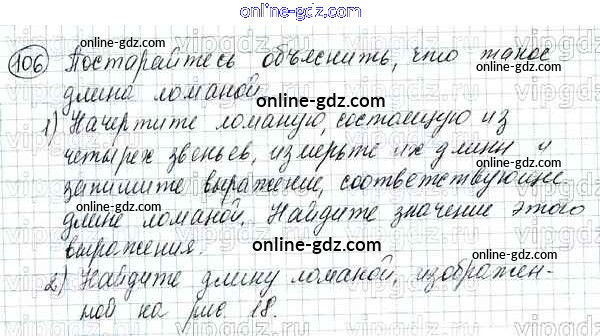 online-gdz.com
106 Постарайтесь объяснить, что такое
online-gdz.com online-gdz.com
длина ломаной
online-gdz.com
1) Начертите ломаную, состоящую из
четырех звеньев, измерьте их длину и
online-gdz.com
запишите выражение, соответствующее
online-gdz.com
длине ломаной. Найдите значение этого
выражения.
online-gdz.com
2) Найдите длину ломаной, изображен-
online-gdz.com
ной на рис. 18.